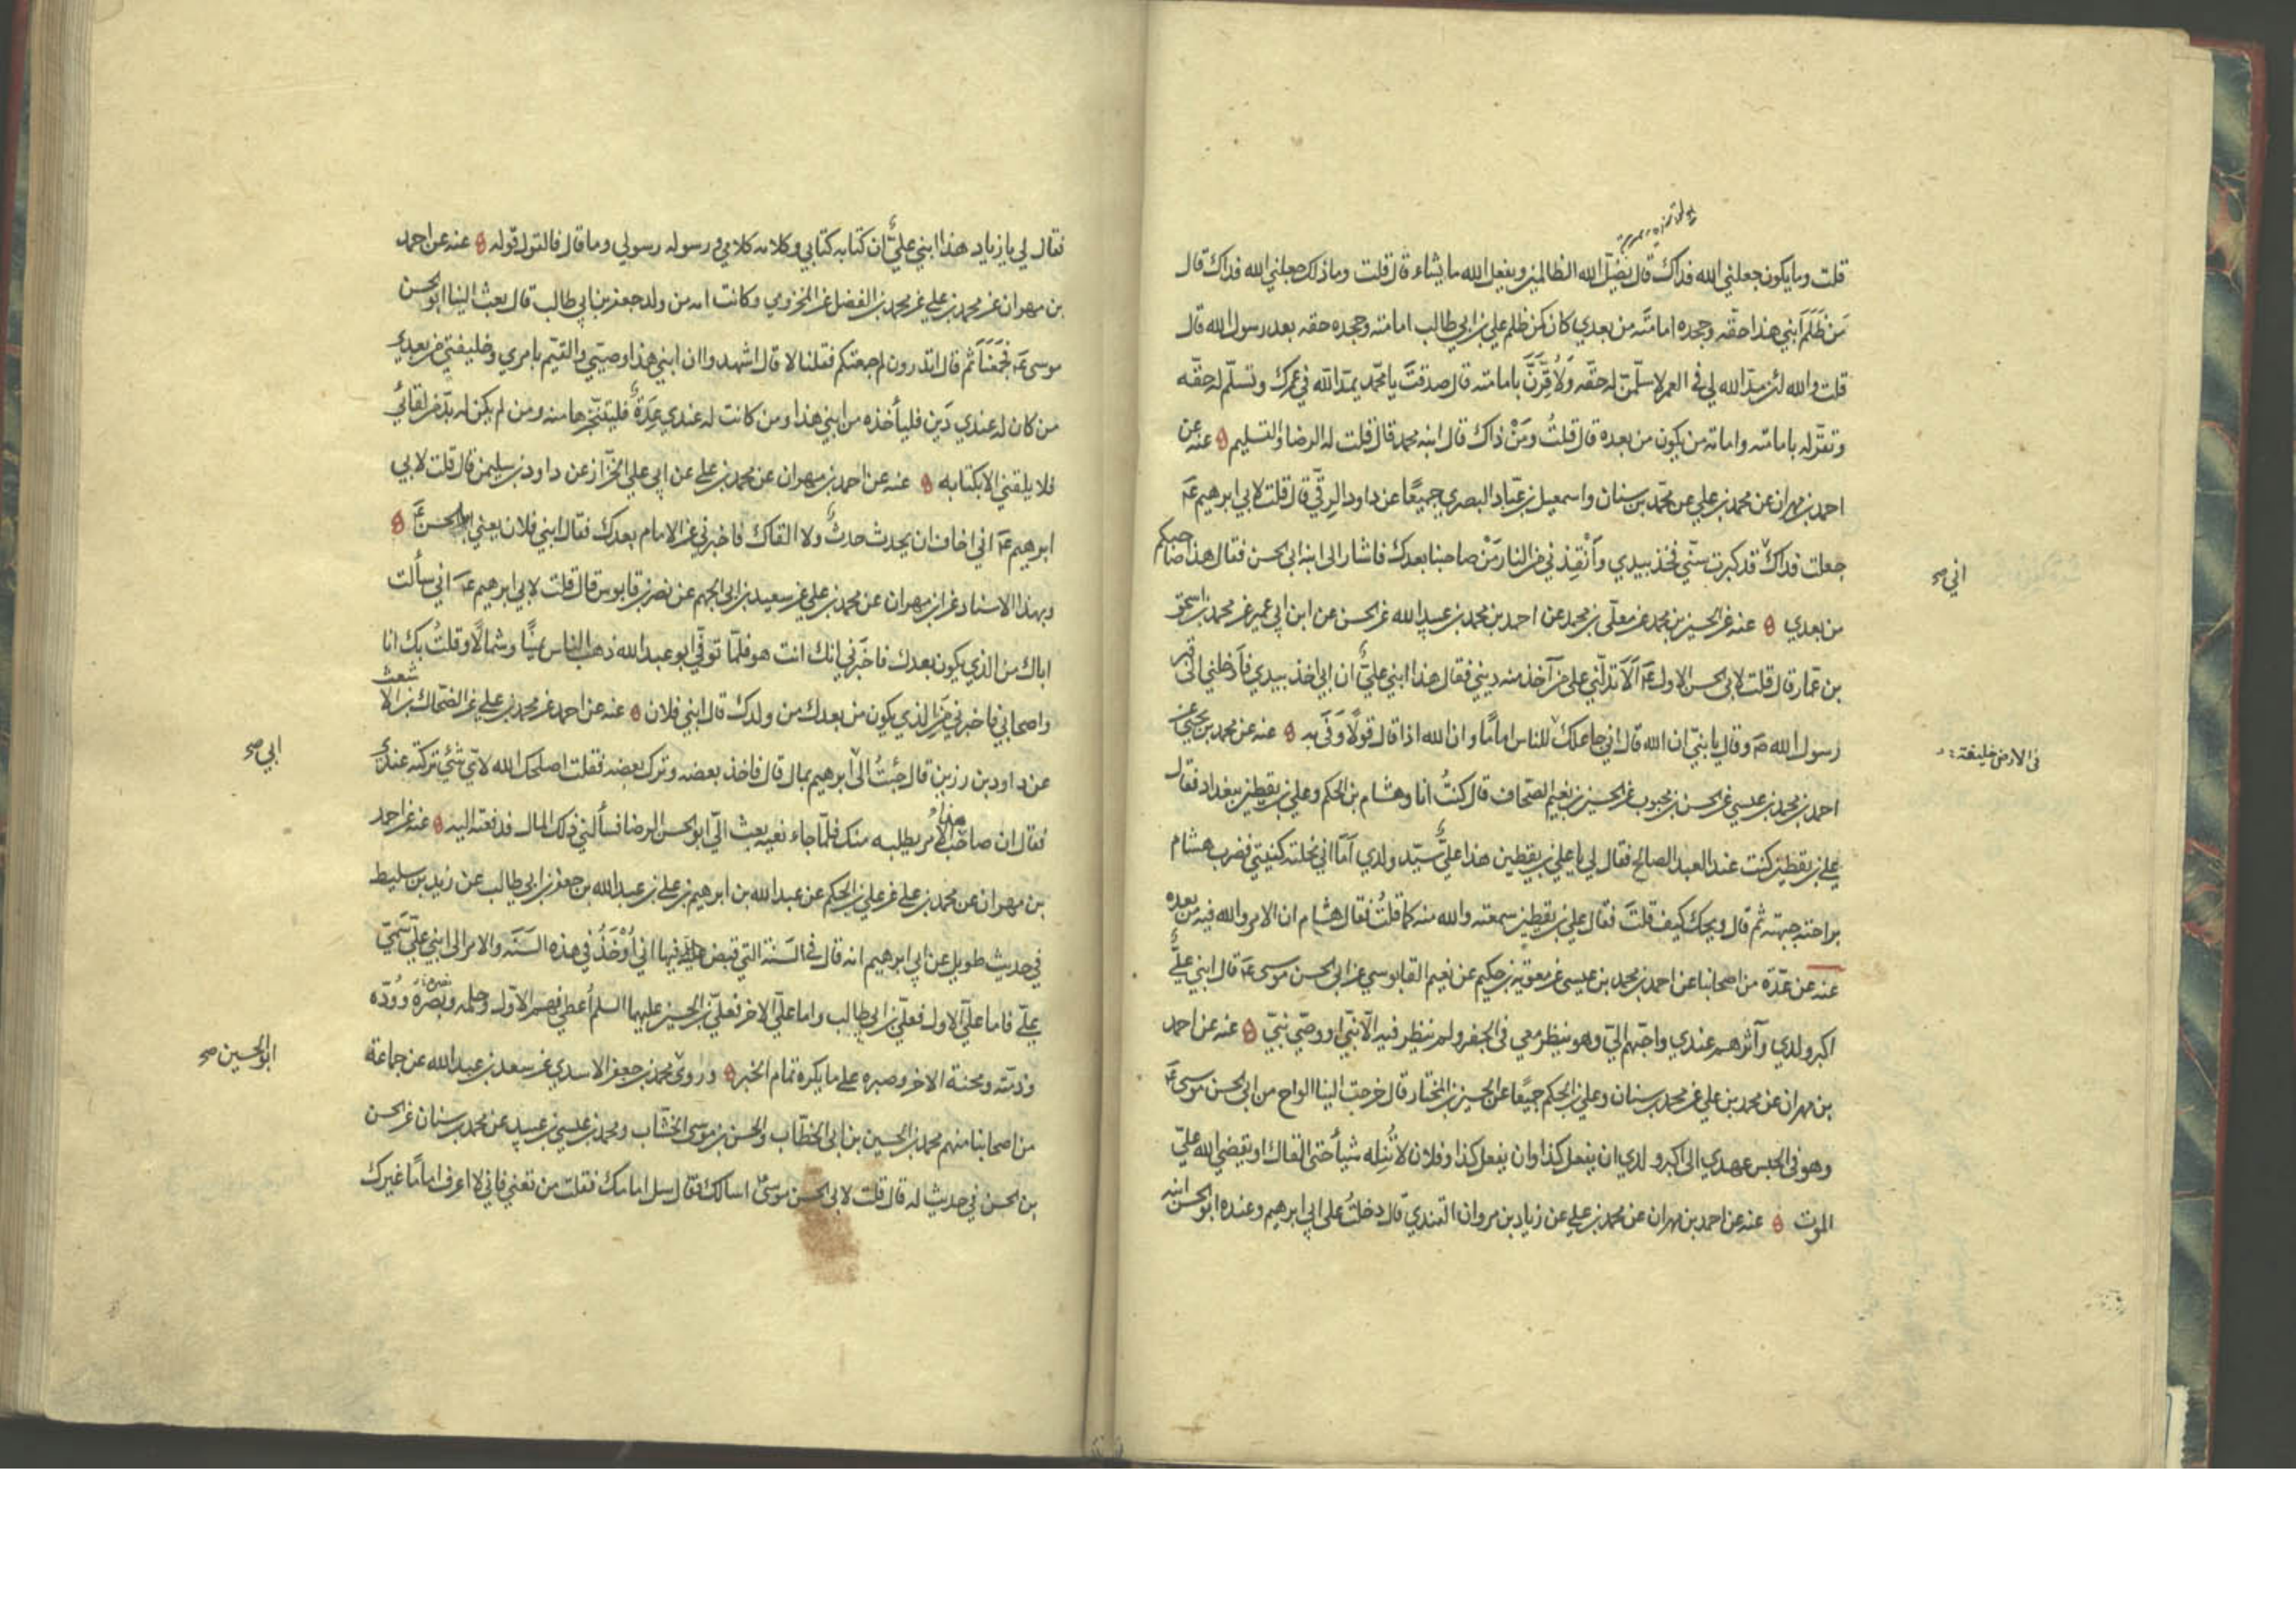 قلت وما يكون جعلني الله فداك قال يضل الله الظالمين ويفعل الله ما يشاء قال قلت وما ذلك جعلني الله فداك قال
مَن ظَلَمَ ابني هذا حقّه وجحده امامتَه من بعدي كان كمن ظلم علي بن ابي طالب امامته وجحده حقه بعد رسول الله قال
قلت والله لئن مدّ الله لي في العمر لاسلّمنّ له حقّه وَلَاُقِرَّنَّ بامامته قال صدقتَ يا محمّد يمدّ الله في عمرك وتسلّم له حقّه
وتقرّ له بامامته وامامة من يكون من بعده قال قلتُ ومَنْ ذاك قال ابنه محمد قال قلت له الرضا والتسليم ۞ عنه عن
احمد بن مهران عن محمد بن علي عن محمّد بن سنان واسمعيل بن عبّاد البصري جميعًا عن داود الرقّي قال قلت لابي ابرهيم عَم
جعلت فداك قد كبرت سنّي فخذ بيدي وأَنْقِذني من النار مَنْ صاحبنا بعدك فاشار الى ابنه ابي الحسن فقال هذا صاحبكم
اني صح
من بعدي ۞ عنه عن الحسين بن محمد عن معلّى بن محمد عن احمد بن محمد بن عبيد الله عن الحسن عن ابن ابي عمير عن محمد بن اسحق
بن عمّار قال قلت لابي الحسن الاول عَم اَلَا تدلّني على من آخذ منه ديني فقال هذا ابني عليّ ان ابي اخذ بيدي فأدخلني الى قبر
رسول الله ص وقال يا بنيّ ان الله قال اني جاعلك للناس امامًا وان الله اذا قال قولًا وَفَى به ۞ عنه عن محمد بن يحيى عن
في الارض خليفة
احمد بن محمد بن عيسى عن الحسن بن محبوب عن الحسين بن نعيم الصحاف قال كنتُ انا وهشام بن الحكم وعلي بن يقطين ببغداد فقال
علي بن يقطين كنت عند العبد الصالح فقال لي يا علي بن يقطين هذا عليّ سيّد ولدي اَمَا اني نحلته كنيتي فضرب هشام
براحته جبهته ثم قال ويحك كيف قلتَ فقال علي بن يقطين سمعته والله منه كما قلتُ فقال هشام ان الامر والله فيه من بعده
عنه عن عدّة من اصحابنا عن احمد بن محمد بن عيسى عن معوية بن حكيم عن نعيم القابوسي عن ابي الحسن موسى عَم قال ابني عليّ
اكبر ولدي وآثرهم عندي واحبّهم اليّ وهو ينظر معي في الجفر ولم ينظر فيه الّا نبيّ او وصيّ نبيّ ۞ عنه عن احمد
بن مهران عن محمد بن علي عن محمد بن سنان وعلي بن الحكم جميعًا عن الحسين بن المختار قال خرجت الينا الواح من ابي الحسن موسى عَم
وهو في الحبس عهدي الى اكبر ولدي ان يفعل كذا وان يفعل كذا وفلان لا تُنِله شيأ حتى القاك او يقضي الله عليّ
الموت ۞ عنه عن احمد بن مهران عن محمد بن علي عن زياد بن مروان القندي قال دخلتُ على ابي ابرهيم وعنده ابو الحسن ابنه
فقال لي يا زياد هذا ابني عليّ ان كتابه كتابي وكلامه كلامي ورسوله رسولي وما قال فالقول قوله ۞ عنه عن احمد
بن مهران عن محمد بن علي عن محمد بن الفضل عن المخزومي وكانت امه من ولد جعفر بن ابي طالب قال بعث الينا ابو الحسن
موسى عَم فجَمَعَنَا ثم قال اتدرون لم جمعتكم فقلنا لا قال اشهدوا ان ابني هذا وصيّي والقيّم بامري وخليفتي من بعدي
من كان له عندي دَين فليأخذه من ابني هذا ومن كانت له عندي عِدَة فليتنجّزها منه ومن لم يكن له بدّ من لقائي
فلا يلقني الا بكتابه ۞ عنه عن احمد بن مهران عن محمد بن علي عن ابي علي الخزّاز عن داود بن سليمن قال قلت لابي
ابرهيم عَم اني اخاف ان يحدث حدث ولا القاك فاخبرني عن الامام بعدك فقال ابني فلان يعني ابا الحسن عَم ۞
وبهذا الاسناد عن ابن مهران عن محمد بن علي عن سعيد بن ابي الجهم عن نصر بن قابوس قال قلت لابي ابرهيم عَم اني سألت
اباك من الذي يكون بعدك فاخبرني انك انت هو فلمّا توفّي ابو عبد الله ذهب الناس يمينًا وشمالًا وقلتُ بك انا
واصحابي فاخبرني مَن الذي يكون من بعدك من ولدك قال ابني فلان ۞ عنه عن احمد عن محمد بن علي عن الضحّاك بن الاشعث
عن داود بن رزين قال جئتُ الى ابرهيم بمال قال فاخذ بعضه وترك بعضه فقلت اصلحك الله لايّ شئ تركته عندي
ابي صح
فقال ان صاحب هذا الامر يطلبه منك فلمّا جاء نعيه بعث اليّ ابو الحسن الرضا فسألني ذلك المال فدفعته اليه ۞ عنه عن احمد
بن مهران عن محمد بن علي عن علي بن الحكم عن عبد الله بن ابرهيم بن علي بن عبد الله بن جعفر بن ابي طالب عن زيد بن سليط
في حديث طويل عن ابي ابرهيم انه قال في السَنة التي قبض فيها اني أُوْخَذُ في هذه السَنَة والامر الى ابني عليّ سَمِيّ
عليّ فاما عليّ الاول فعليّ بن ابي طالب واما عليّ الاخر فعليّ بن الحسين عليهما السلم أُعطي فهم الاوّل وحلمه ونصره ووُدّه
وذمّته ومحنة الاخر وصبره على ما يكره تمام الخبر ۞ وروى محمد بن جعفر الاسدي عن سعد بن عبد الله عن جماعة
ابو الحسين صح
من اصحابنا منهم محمد بن الحسين بن ابي الخطّاب والحسن بن موسى الخشّاب ومحمد بن عيسى بن عبيد عن محمد بن سنان عن الحسن
بن الحسن في حديث له قال قلت لابي الحسن موسى اسالك فقال سل امامك فقلت من تعني فاني لا اعرف امامًا غيرك